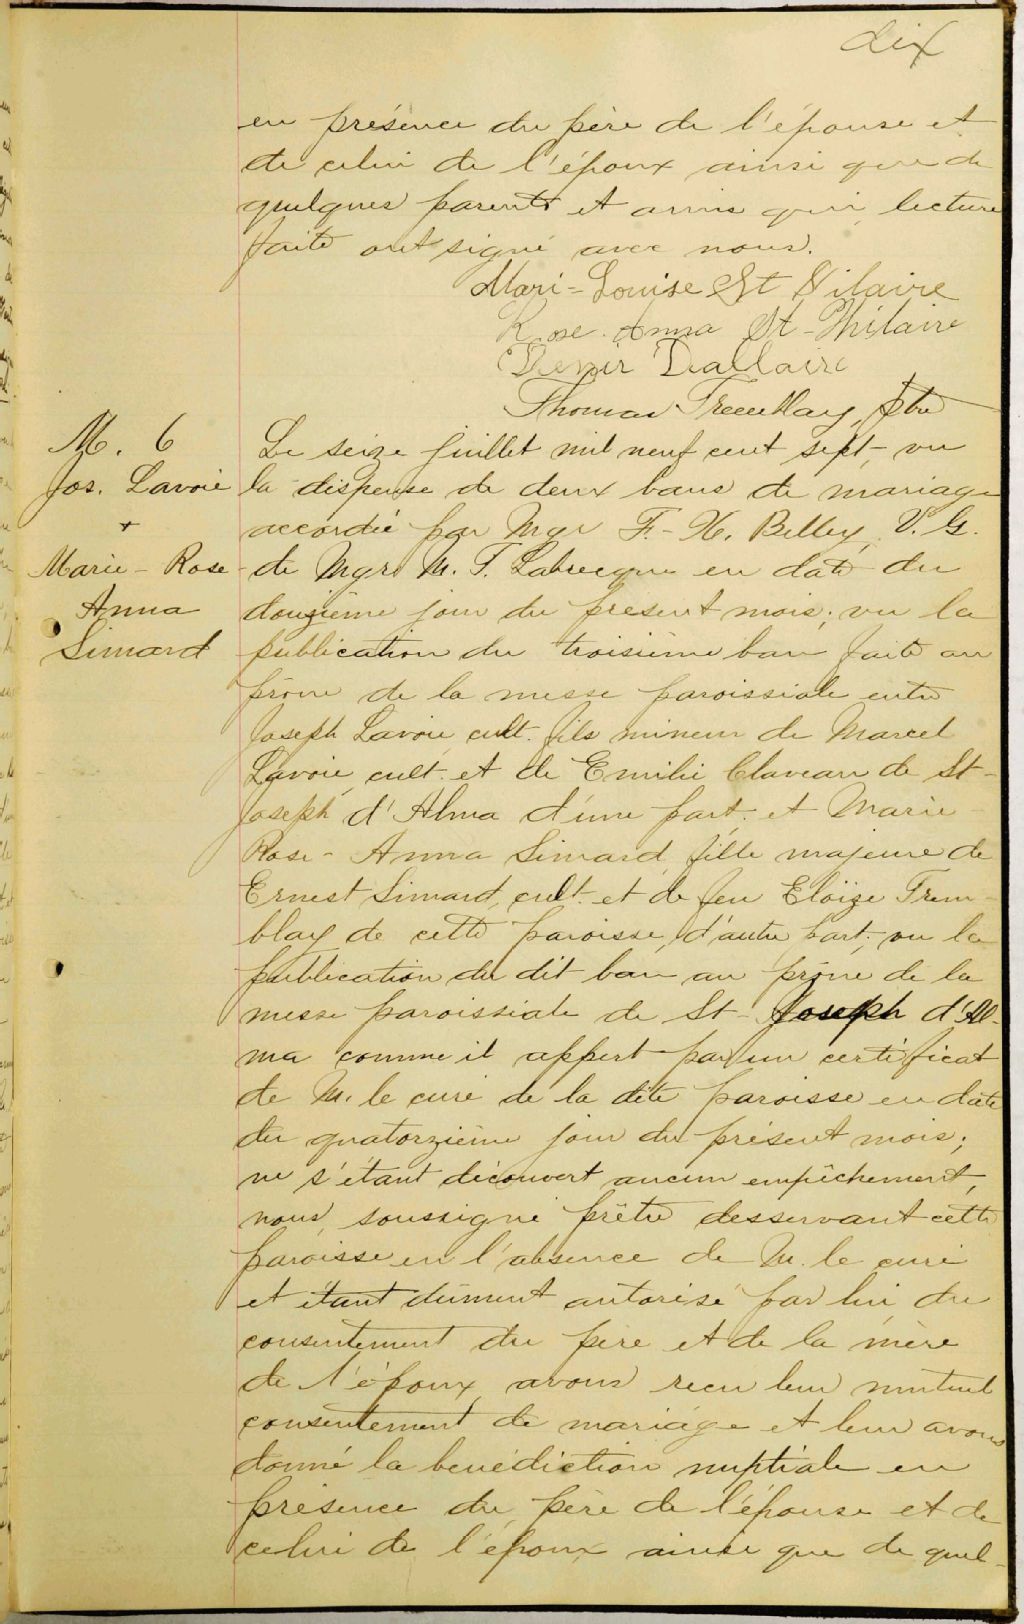 dix
en présence du père de l'épouse et
de celui de l'époux ainsi que de
quelques parents et amis qui lecture
faite ont signé avec nous.
Mari-Louise St Hilaire
Rose-Anna St-Hilaire
Dallaire
Thomas Tremblay, Ptre
M. 6
Jos. Lavoie
+
Marie-Rose
Anna
Simard
Le seize juillet mil neuf cent sept, vu
la dispense de deux bans de mariage
accordée par Mgr F.-X. Belley, V. G.
de Mgr M. T. Labrecque en date du
douzième jour du présent mois; vu la
publication du troisième ban faite au
prône de la messe paroissiale entre
Joseph Lavoie cult. fils mineur de Marcel
Lavoie, cult. et de Emilie Claveau de St-
Joseph d'Alma d'une part, et Marie
Rose-Anna Simard, fille majeure de
Ernest Simard, cult. et de feu Eloïze Trem-
blay de cette paroisse, d'autre part, vu la
publication du dit ban au prône de la
messe paroissiale de St-Joseph d'Al-
ma comme il appert par un certificat
de M. le curé de la dite paroisse en date
du quatorzième jour du présent mois;
ne s'étant découvert aucun empêchement,
nous, soussigné prêtre desservant cette
paroisse en l'absence de M. le curé
et étant dûment autorisé par lui du
consentement du père et de la mère
de l'époux, avons reçu leur mutuel
consentement de mariage et leur avons
donné la bénédiction nuptiale en
présence du père de l'épouse et de
celui de l'époux ainsi que de quel-